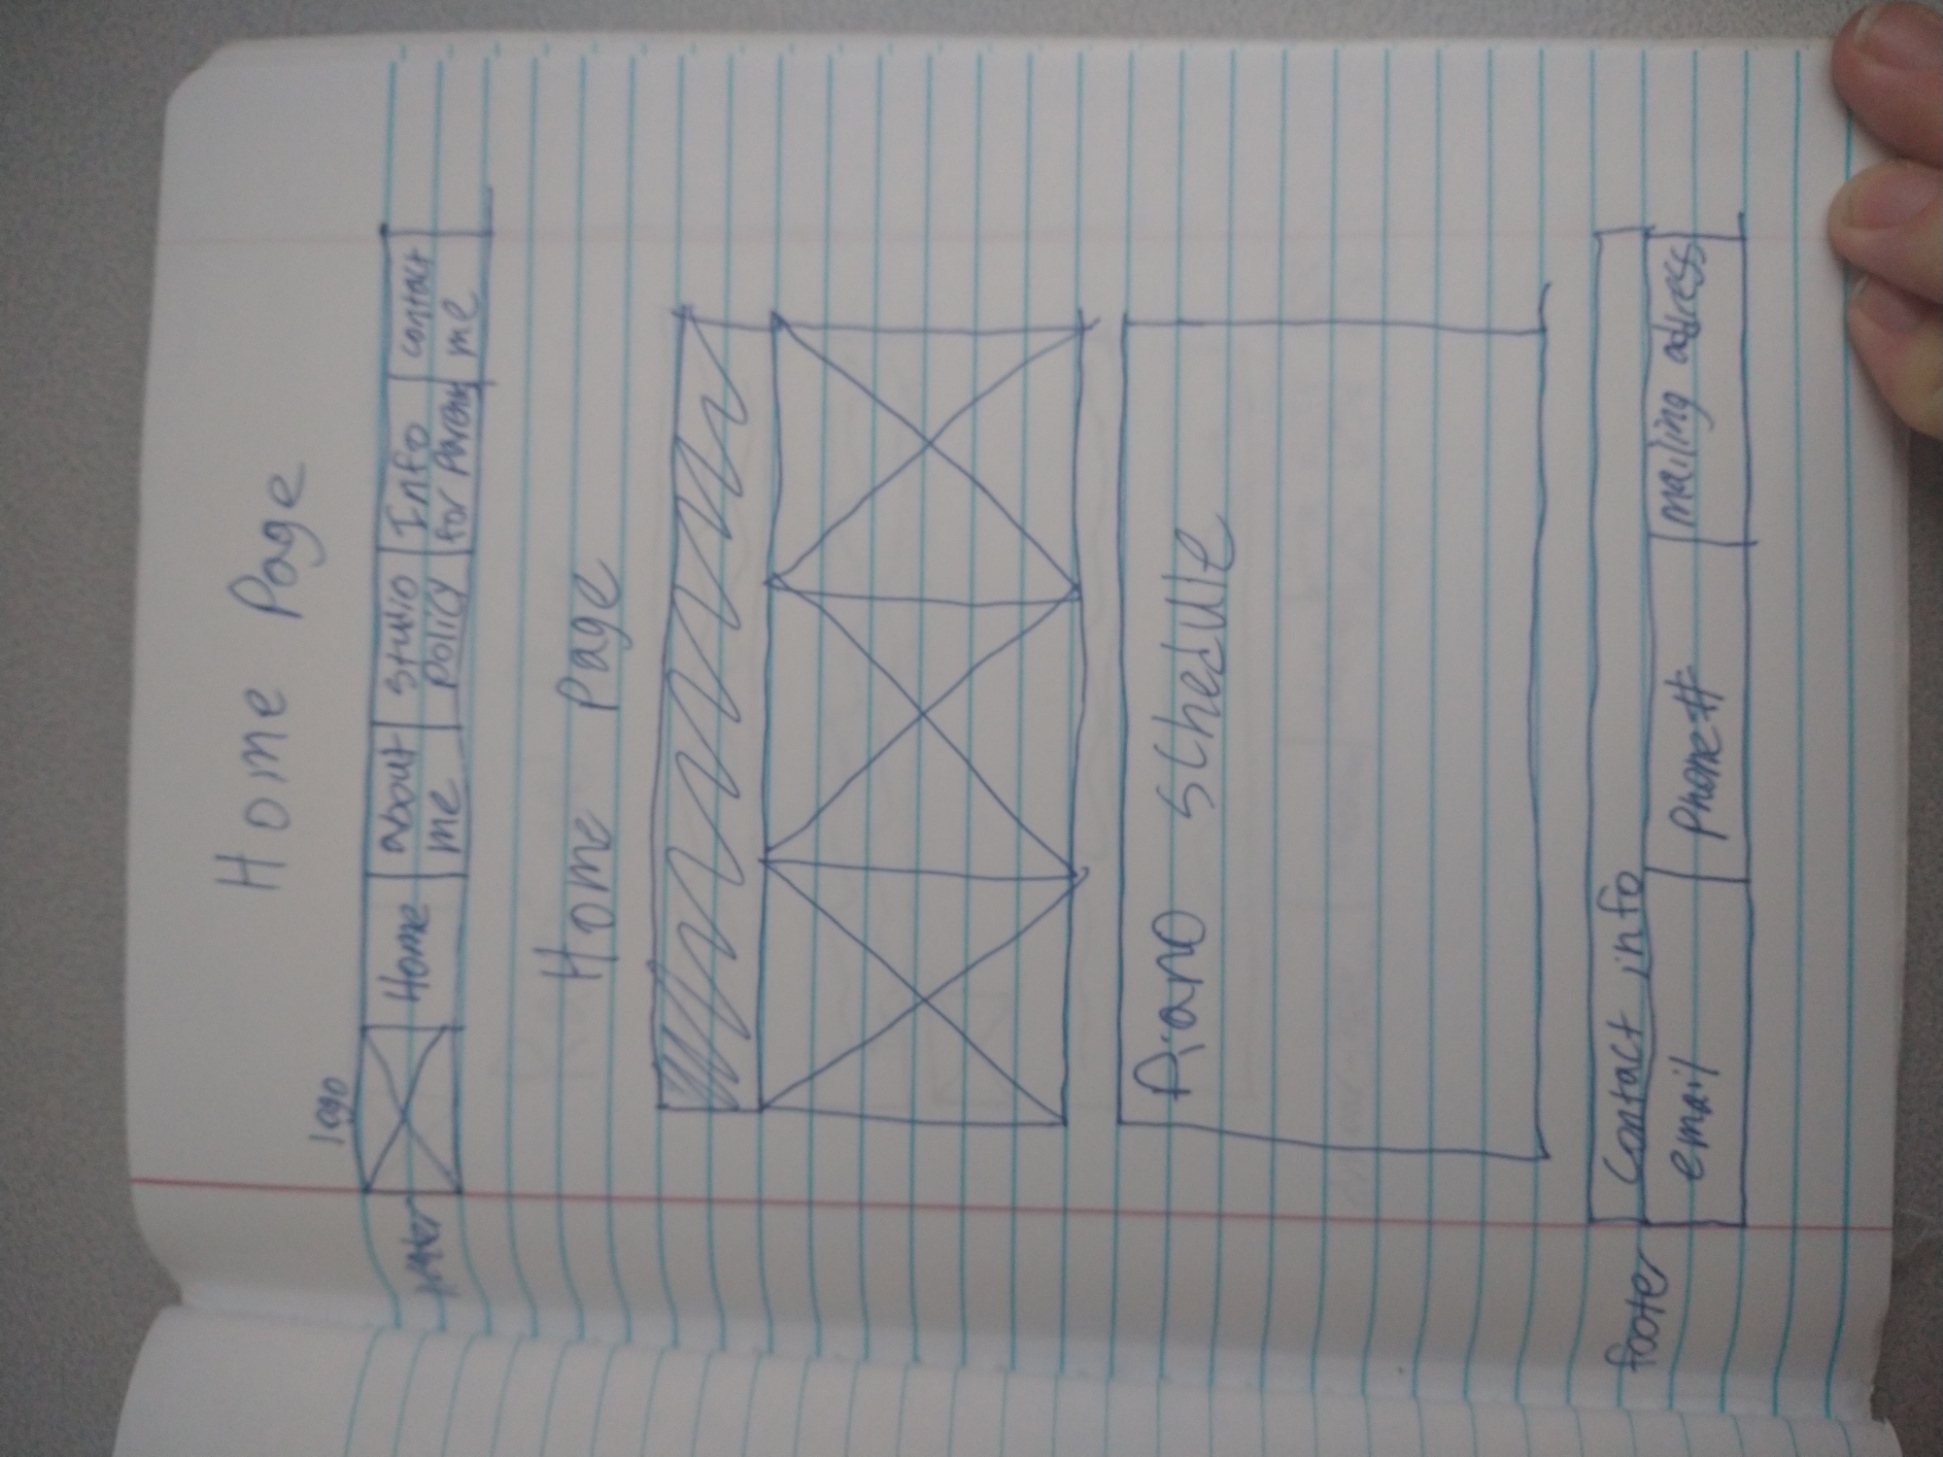 Home Page
logo
Home
about
me
Studio
Policy
Info
for Parents
contact
me
Home Page
Piano Schedule
footer
Contact info
email
Phone #
mailing address